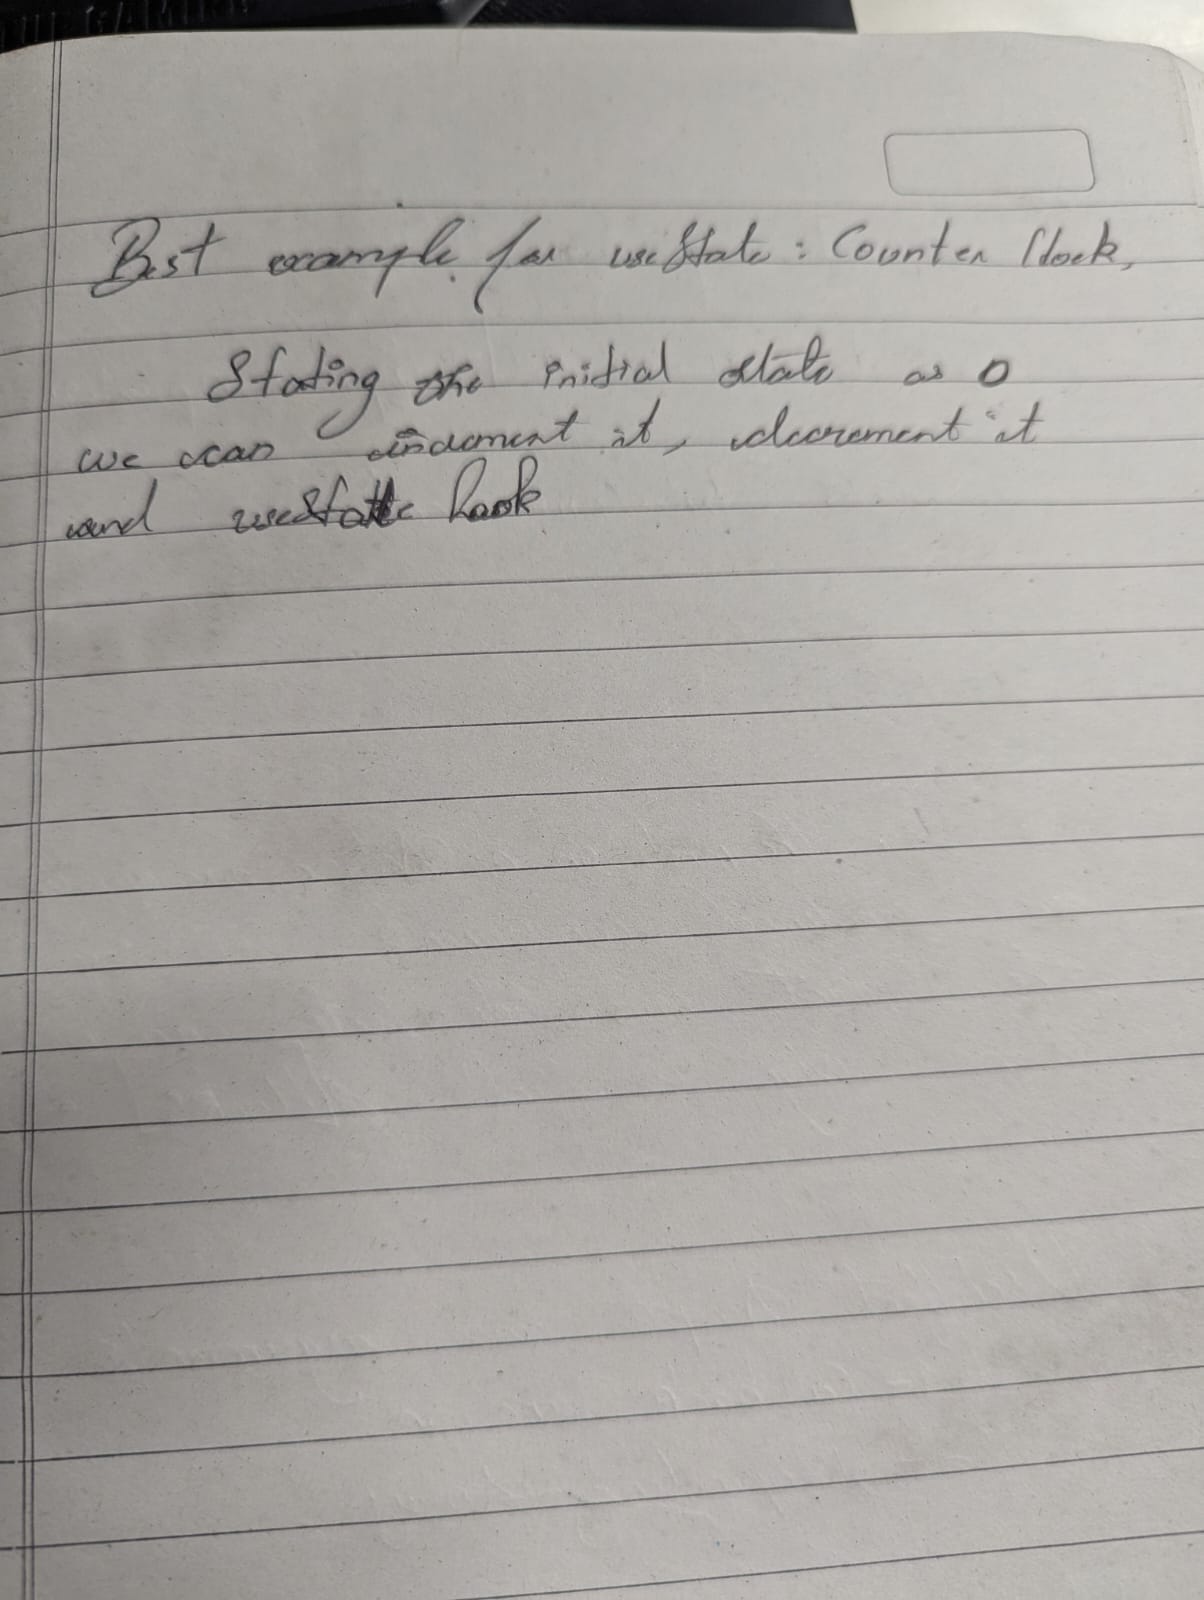 Best example for useState : Counter Clock,
Stating the initial state as 0
we can increment it, decrement it
and useState hook